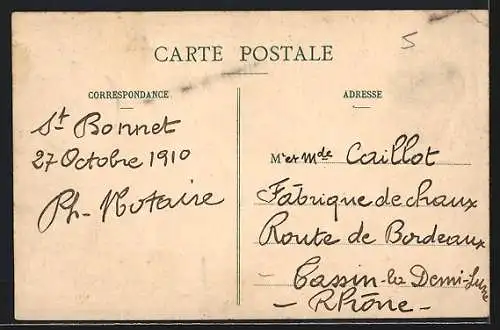 5
CARTE POSTALE
CORRESPONDANCE
ADRESSE
St Bonnet
27 Octobre 1910
Ph- Notaire
M et Mde Caillot
Fabrique de chaux
Route de Bordeaux
Tassin-la Demi-Lune
- Rhône -